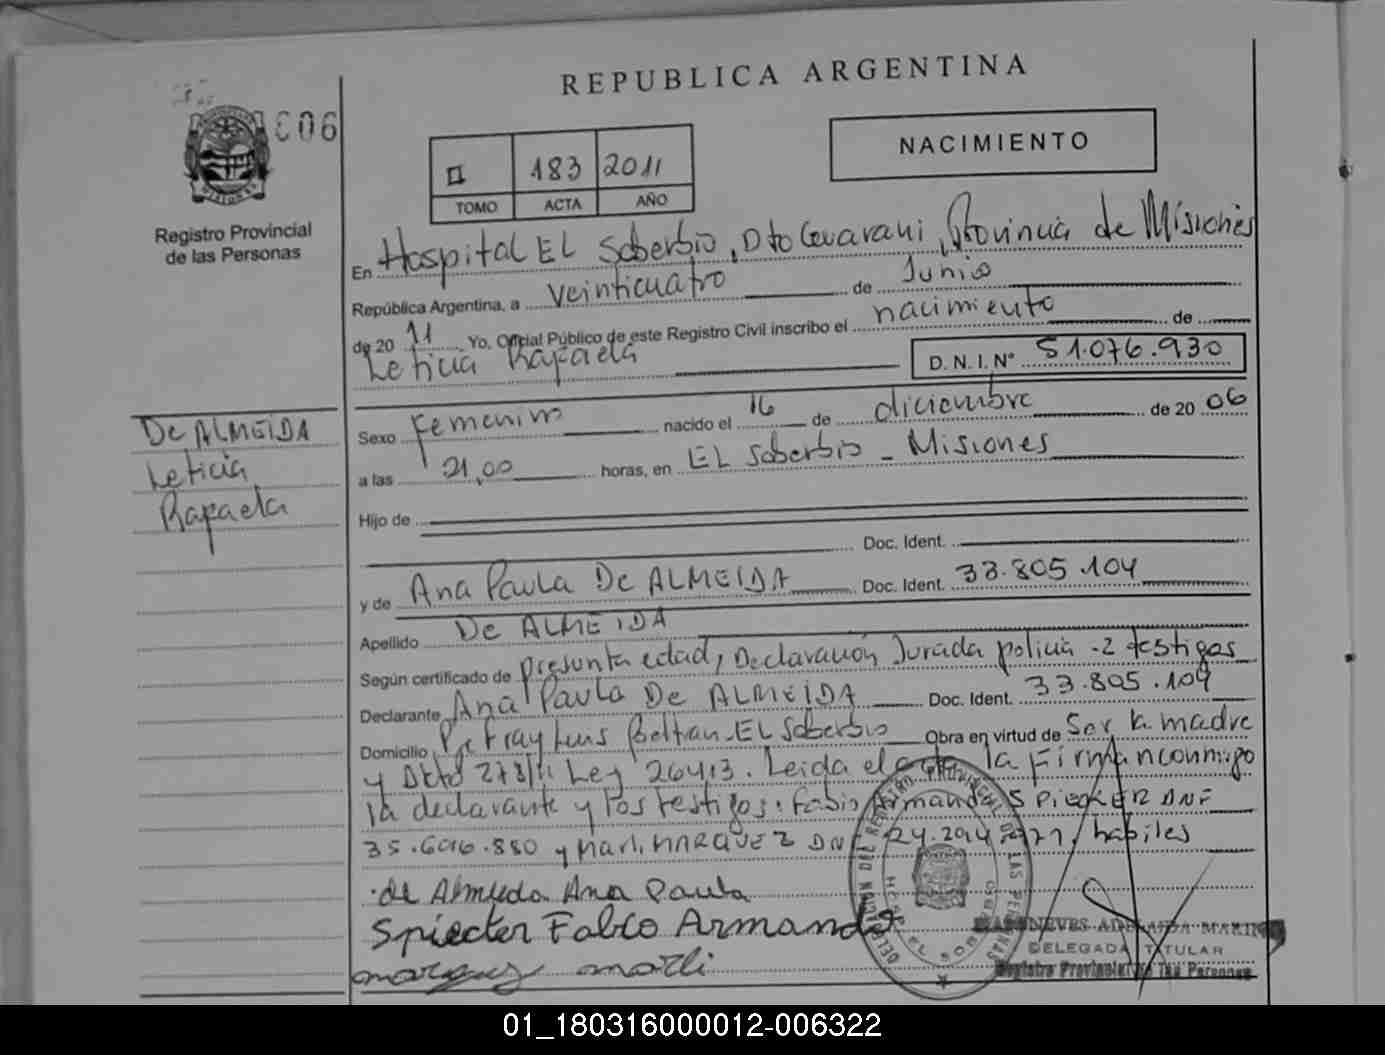 REPUBLICA ARGENTINA
006
NACIMIENTO
II 183 2011
TOMO ACTA AÑO
Registro Provincial
de las Personas
En Hospital EL Soberbio, Dto Guarani, Provincia de Misiones
República Argentina, a veinticuatro de Junio
de 20 11 Yo, Oficial Público de este Registro Civil inscribo el nacimiento de
Leticia Rafaela D.N.I. N° 51.076.930
De ALMEIDA
Leticia
Rafaela
Sexo Femenino nacido el 16 de diciembre de 20 06
a las 21,00 horas, en EL Soberbio - Misiones
Hijo de
Doc. Ident.
y de Ana Paula De ALMEIDA Doc. Ident. 33.805.104
Apellido De ALMEIDA
Según certificado de presunta edad, Declaración Jurada policia - 2 testigos
Declarante Ana Paula De ALMEIDA Doc. Ident. 33.805.104
Domicilio Fray Luis Beltran - EL Soberbio Obra en virtud de Ser la madre
y Dkto 278/11 Ley 26413. Leida el acta la Firman conmigo
la declarante y los testigos: Fabio Armando SPIECKER DNI
35.696.880 y Marli MARQUEZ DNI 24.294., habiles
de Almeida Ana Paula
Spiecker Fabio Armando
marquez marli
DELEGACION DEL REGISTRO PROVINCIAL DE LAS PERSONAS
EL SOBERBIO
DELEGADA TITULAR
Registro Provincial de las Personas
01_180316000012-006322